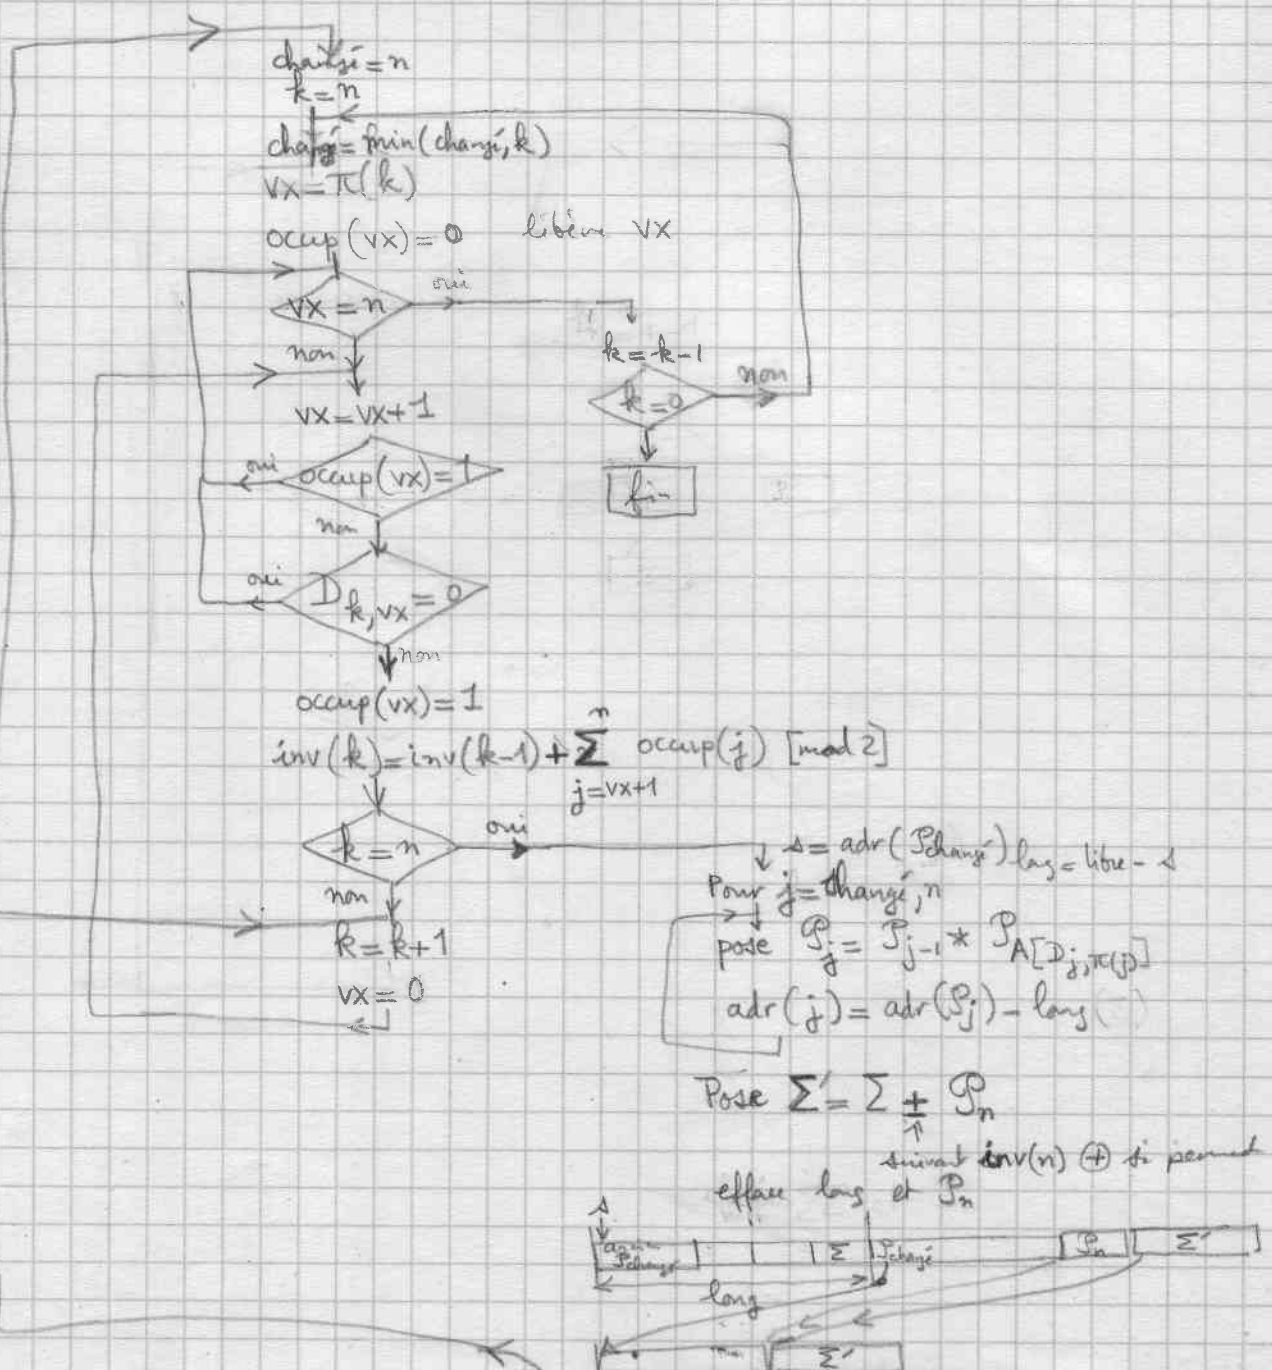 changé = n
k = n
changé = min(changé, k)
vx = π(k)
occup(vx) = 0 libère vx
vx = n
oui
non
k = k-1
k = 0
non
fin
vx = vx+1
occup(vx) = 1
oui
non
D k,vx = 0
oui
non
occup(vx) = 1
inv(k) = inv(k-1) + Σ occup(j) [mod 2]
n
j=vx+1
k = n
oui
non
k = k+1
vx = 0
s = adr(P changé) long = libre - s
Pour j = changé, n
pose P j = P j-1 * P A[D j,π(j)]
adr(j) = adr(P j) - long
Pose Σ' = Σ ± P n
suivant inv(n) ⊕ si
efface long et P n
s
P changé Σ P changé P n Σ'
long
Σ'